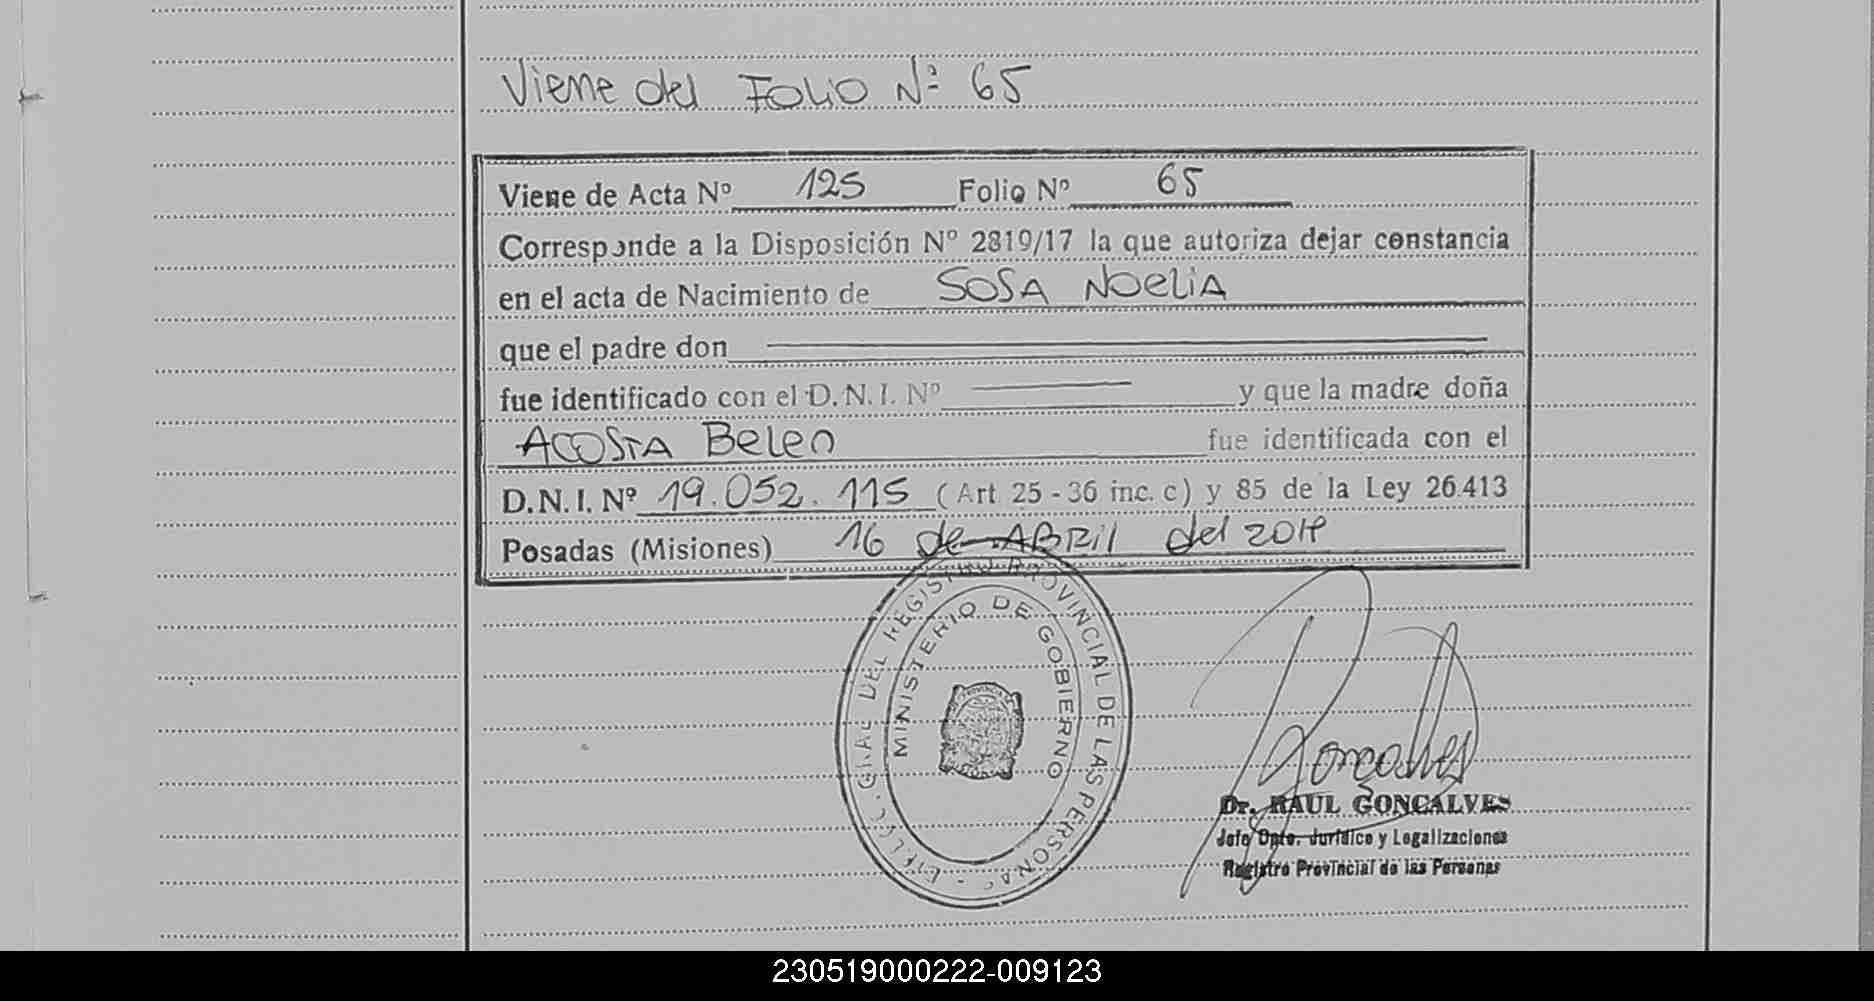 Viene del Folio Nº 65
Viene de Acta Nº 125 Folio Nº 65
Corresponde a la Disposición Nº 2819/17 la que autoriza dejar constancia
en el acta de Nacimiento de SOSA NOELIA
que el padre don
fue identificado con el D.N.I. Nº y que la madre doña
ACOSTA Belen fue identificada con el
D.N.I. Nº 19.052.115 (Art 25 - 36 inc. c) y 85 de la Ley 26.413
Posadas (Misiones) 16 de ABRil del
GRAL DEL REGISTRO PROVINCIAL DE LAS PERSONAS
MINISTERIO DE GOBIERNO
Gonçalves
Dr. RAUL GONÇALVES
Jefe Dpto. Jurídico y Legalizaciones
Registro Provincial de las Personas
230519000222-009123